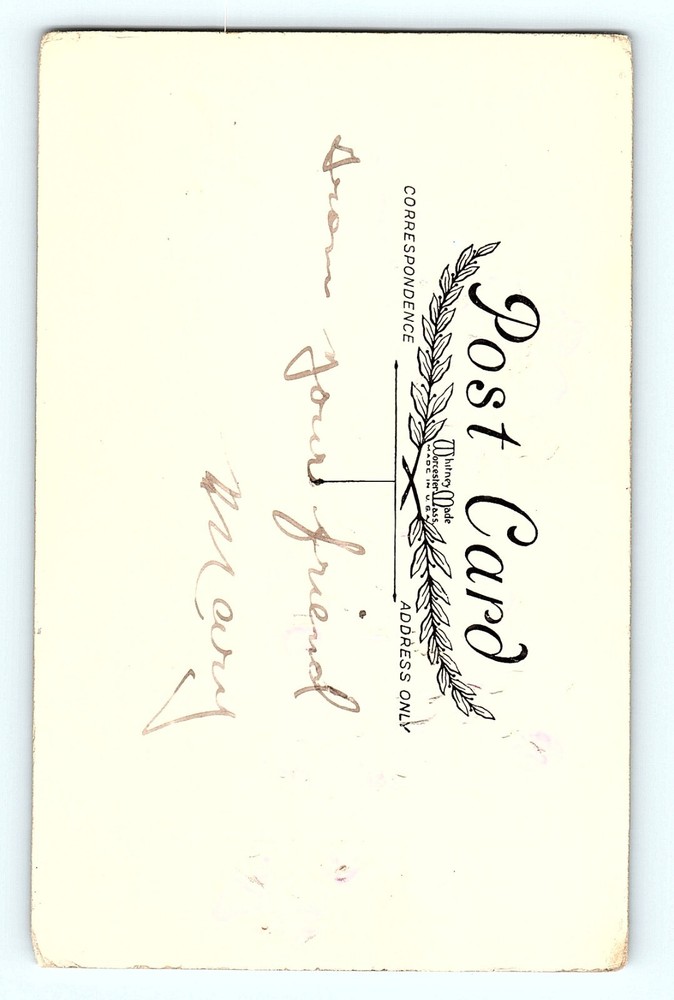 Post Card
Whitney Made
Worcester Mass.
MADE IN U.S.A.
CORRESPONDENCE
ADDRESS ONLY
From Your friend
Mary